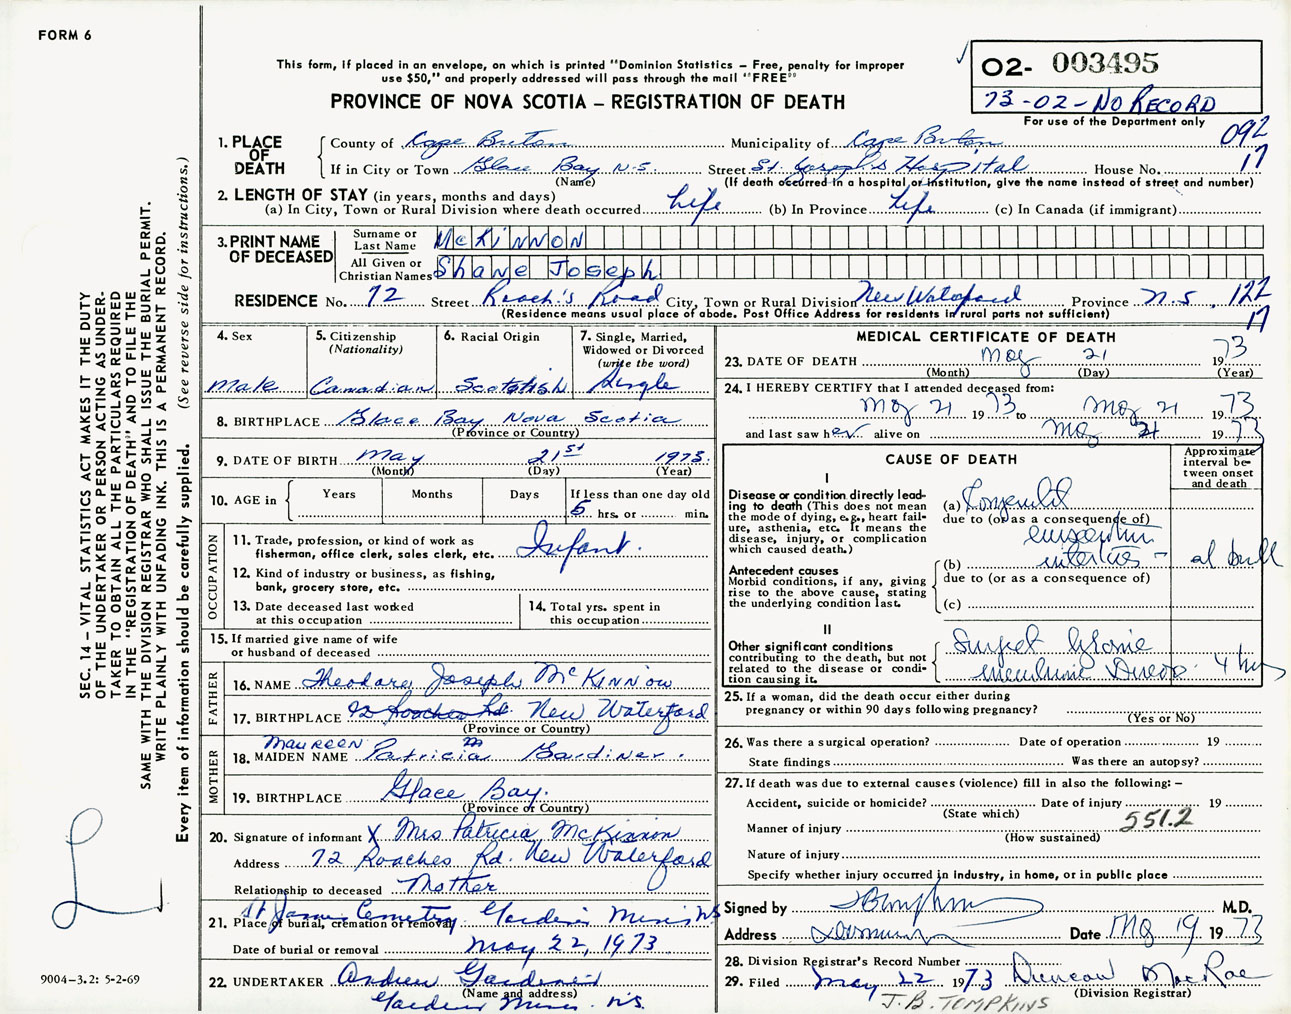 FORM 6
This form, if placed in an envelope, on which is printed "Dominion Statistics – Free, penalty for improper
use $50," and properly addressed will pass through the mail "FREE"
PROVINCE OF NOVA SCOTIA – REGISTRATION OF DEATH
02- 003495
73-02-NO RECORD
For use of the Department only
092
17
1. PLACE OF DEATH
County of Cape Breton Municipality of Cape Breton
If in City or Town Glace Bay N.S. Street St. Joseph's Hospital House No.
(Name) (If death occurred in a hospital or institution, give the name instead of street and number)
2. LENGTH OF STAY (in years, months and days)
(a) In City, Town or Rural Division where death occurred life (b) In Province life (c) In Canada (if immigrant)
3. PRINT NAME OF DECEASED
Surname or Last Name McKINNON
All Given or Christian Names Shane Joseph
RESIDENCE No. 72 Street Roach's Road City, Town or Rural Division New Waterford Province N.S. 122
17
(Residence means usual place of abode. Post Office Address for residents in rural parts not sufficient)
4. Sex
Male
5. Citizenship
(Nationality)
Canadian
6. Racial Origin
Scottish
7. Single, Married,
Widowed or Divorced
(write the word)
Single
8. BIRTHPLACE Glace Bay Nova Scotia
(Province or Country)
9. DATE OF BIRTH May 21st 1973.
(Month) (Day) (Year)
10. AGE in Years Months Days If less than one day old
5 hrs. or min.
OCCUPATION
11. Trade, profession, or kind of work as
fisherman, office clerk, sales clerk, etc. Infant.
12. Kind of industry or business, as fishing,
bank, grocery store, etc.
13. Date deceased last worked
at this occupation
14. Total yrs. spent in
this occupation
15. If married give name of wife
or husband of deceased
FATHER
16. NAME Theodore Joseph McKinnon
17. BIRTHPLACE 72 Roaches Rd. New Waterford
(Province or Country)
MOTHER
MAUREEN
18. MAIDEN NAME Patricia M Gardiner.
19. BIRTHPLACE Glace Bay.
(Province or Country)
20. Signature of informant X Mrs. Patricia McKinnon
Address 72 Roaches Rd. New Waterford
Relationship to deceased Mother
21. Place of burial, cremation or removal St James Cemetry Gardiner Mines NS
Date of burial or removal May 22, 1973
22. UNDERTAKER Andrew Gardiner
(Name and address)
Gardiner Mines N.S.
MEDICAL CERTIFICATE OF DEATH
23. DATE OF DEATH May 21 1973
(Month) (Day) (Year)
24. I HEREBY CERTIFY that I attended deceased from:
May 21 1973 to May 21 1973
and last saw her alive on May 21 1973
CAUSE OF DEATH
Approximate
interval be-
tween onset
and death
I
Disease or condition directly lead-
ing to death (This does not mean
the mode of dying, e.g., heart fail-
ure, asthenia, etc. It means the
disease, injury, or complication
which caused death.)
(a) Congenital
due to (or as a consequence of)
(b)
due to (or as a consequence of)
(c)
Antecedent causes
Morbid conditions, if any, giving
rise to the above cause, stating
the underlying condition last.
II
Other significant conditions
contributing to the death, but not
related to the disease or condi-
tion causing it.
4 hrs
25. If a woman, did the death occur either during
pregnancy or within 90 days following pregnancy?
(Yes or No)
26. Was there a surgical operation? Date of operation 19
State findings Was there an autopsy?
27. If death was due to external causes (violence) fill in also the following:–
Accident, suicide or homicide? Date of injury 19
(State which)
Manner of injury 551.2
(How sustained)
Nature of injury
Specify whether injury occurred in industry, in home, or in public place
Signed by M.D.
Address Date May 19 1973
28. Division Registrar's Record Number
29. Filed May 22 1973 Duncan MacRae
(Division Registrar)
J.B. TOMPKINS
SEC. 14 – VITAL STATISTICS ACT MAKES IT THE DUTY
OF THE UNDERTAKER OR PERSON ACTING AS UNDER-
TAKER TO OBTAIN ALL THE PARTICULARS REQUIRED
IN THE "REGISTRATION OF DEATH" AND TO FILE THE
SAME WITH THE DIVISION REGISTRAR WHO SHALL ISSUE THE BURIAL PERMIT.
WRITE PLAINLY WITH UNFADING INK. THIS IS A PERMANENT RECORD.
Every item of information should be carefully supplied. (See reverse side for instructions.)
9004–3.2: 5-2-69